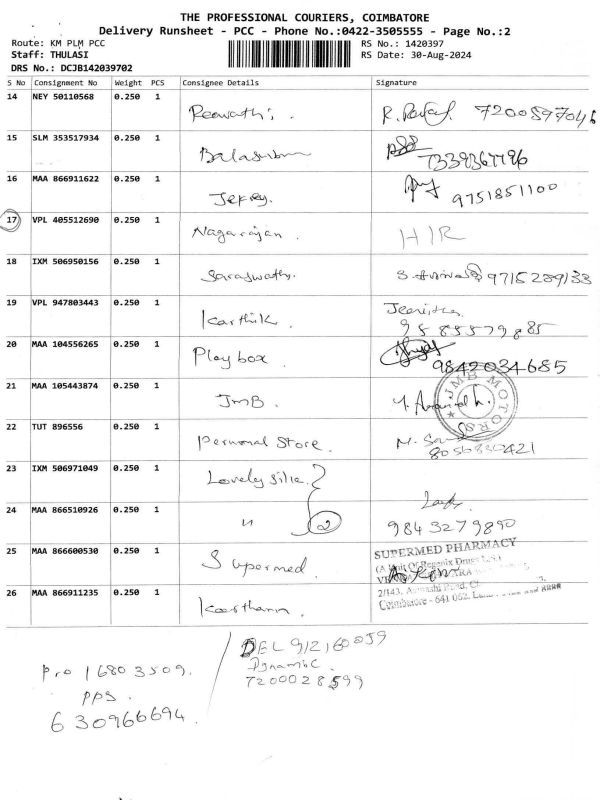 THE PROFESSIONAL COURIERS, COIMBATORE
Delivery Runsheet - PCC - Phone No.:0422-3505555 - Page No.:2
Route: KM PLM PCC
RS No.: 1420397
Staff: THULASI
RS Date: 30-Aug-2024
DRS No.: DCJB142039702
S No Consignment No Weight PCS Consignee Details Signature
14 NEY 50110568 0.250 1 Reawathi. 7200897046
15 SLM 353517934 0.250 1 7339367796
16 MAA 866911622 0.250 1 Jefrey. 9751851100
17 VPL 405512690 0.250 1 Nagarajan. H/R
18 IXM 506950156 0.250 1 Saraswathy. 9715289133
19 VPL 947803443 0.250 1 Karthik. 9585579885
20 MAA 104556265 0.250 1 Play box 9842034685
21 MAA 105443874 0.250 1 JMB. JMB MOTORS
22 TUT 896556 0.250 1 personal Store. 8056830421
23 IXM 506971049 0.250 1 Lovely silk.
24 MAA 866510926 0.250 1 " 2 9843279890
25 MAA 866600530 0.250 1 Supermed. SUPERMED PHARMACY
(A Unit Of Regenix Drugs Ltd.)
26 MAA 866911235 0.250 1 2/143, Avinashi Road,
Coimbatore - 641 062.
DEL 912160059
Dynamic
7200028599
Pro 16803509.
PPS.
630966694.